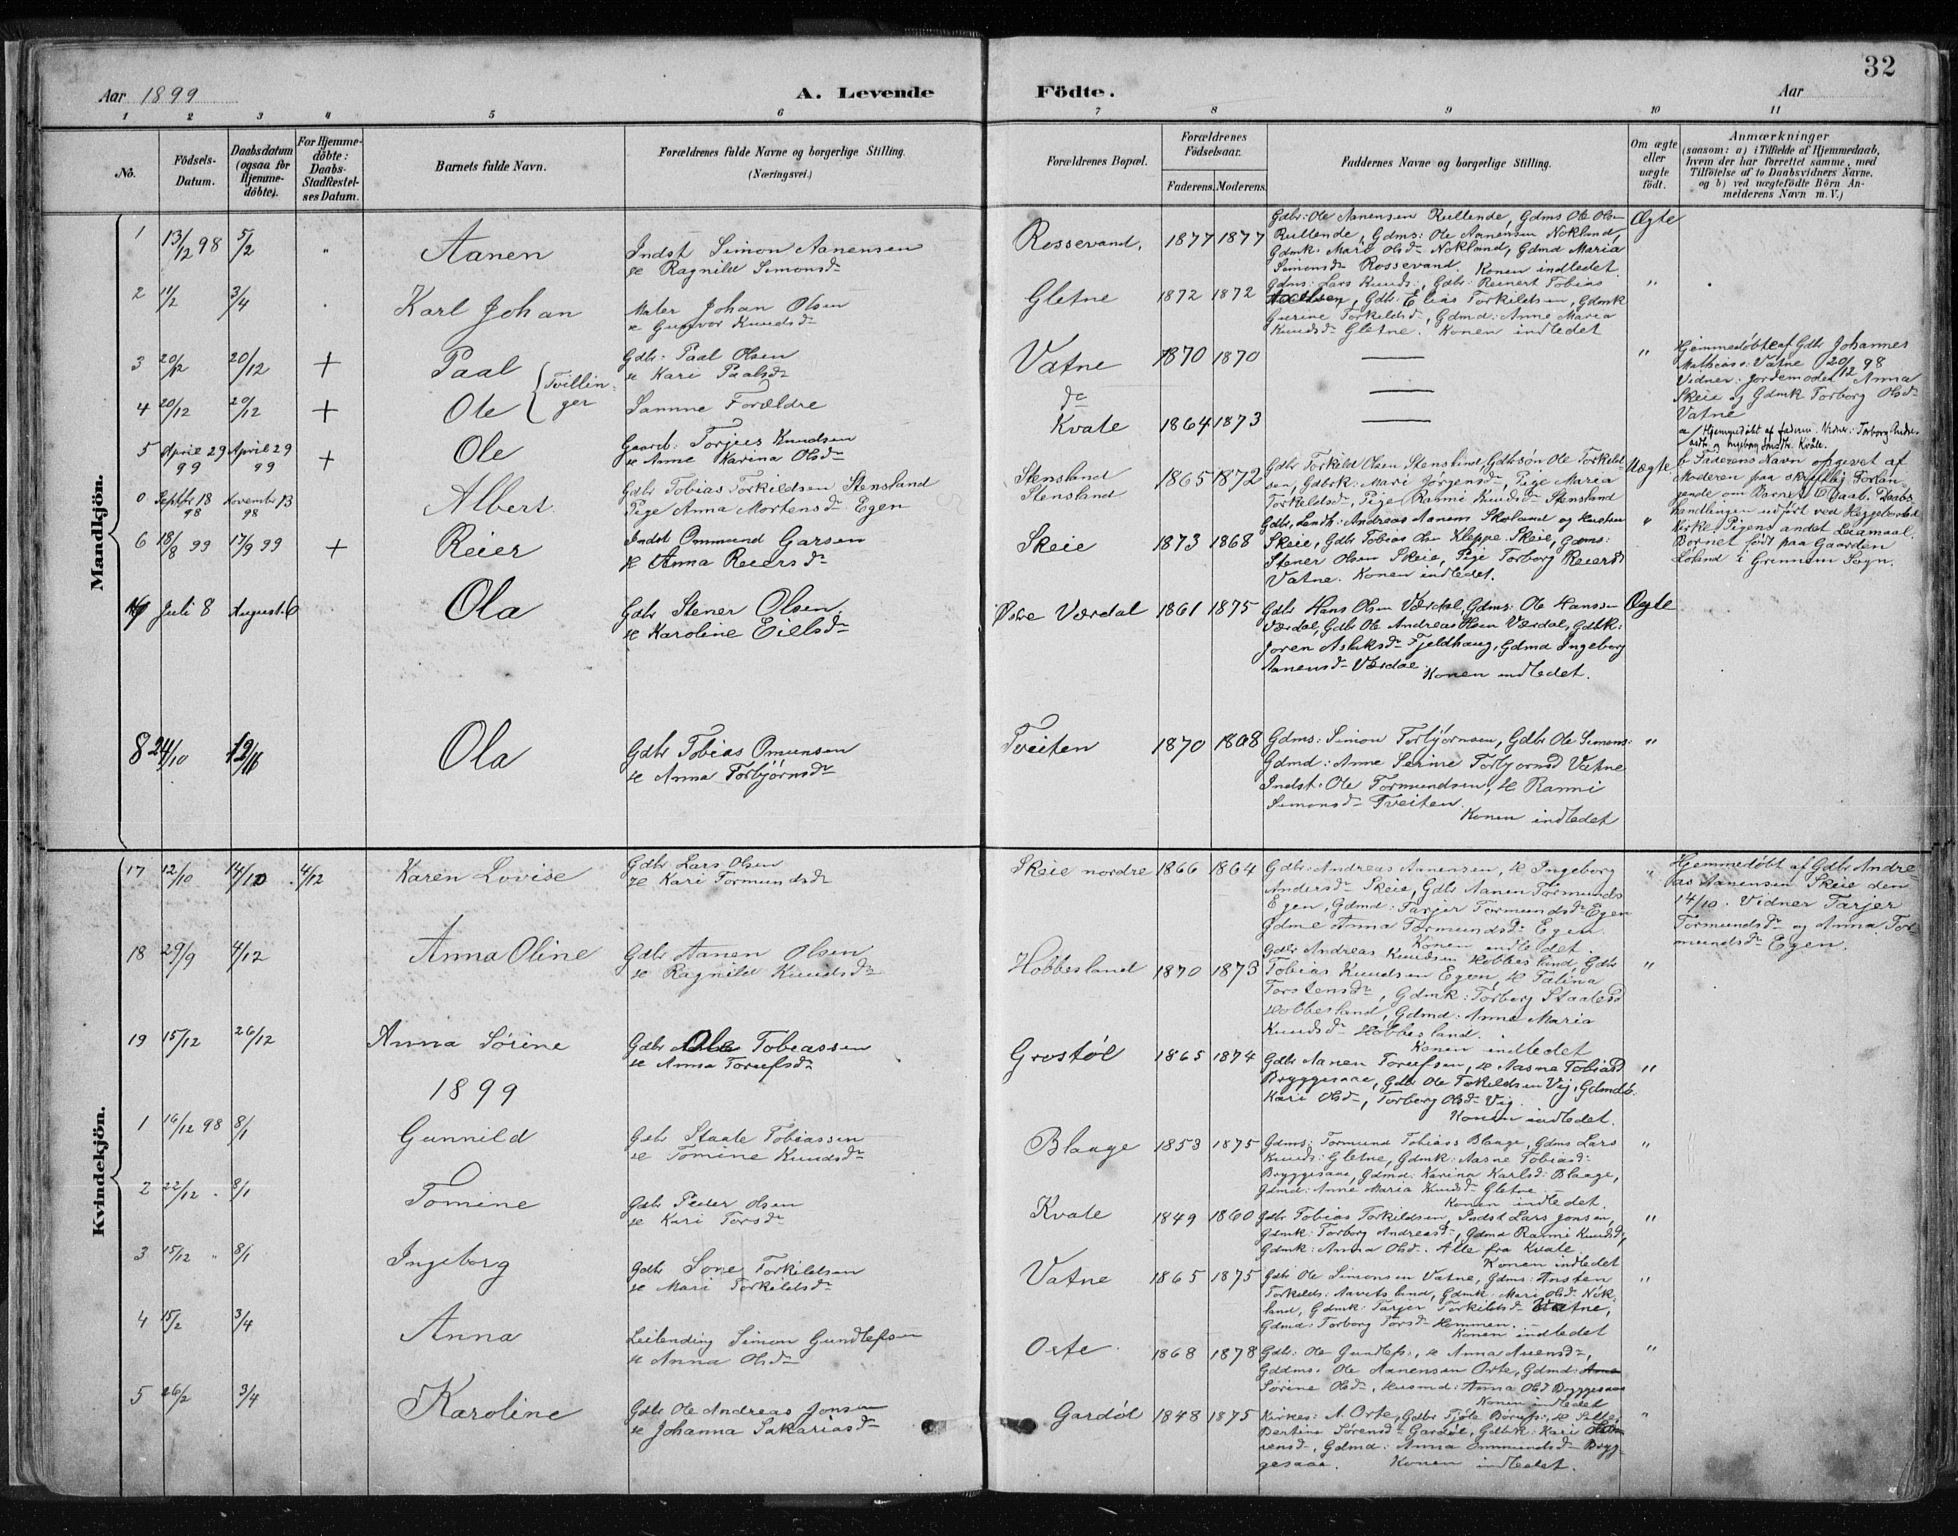 32
Aar 1899
A. Levende Födte.
Aar
1 2 3 4 5 6 7 8 9 10 11
No.
Födsels-Datum.
Daabsdatum (ogsaa for Hjemme-döbte).
For Hjemme-döbte: Daabs-Stadfæstel-ses Datum.
Barnets fulde Navn.
Forældrenes fulde Navne og borgerlige Stilling. (Næringsvei.)
Forældrenes Bopæl.
Forældrenes Födselsaar.
Faderens. Moderens.
Faddernes Navne og borgerlige Stilling.
Om ægte eller uægte födt.
Anmærkninger
(saasom: a) i Tilfælde af Hjemmedaab, hvem der har forrettet samme, med Tilföielse af to Daabsvidners Navne, og b) ved uægtefödte Börn An-melderens Navn m. V.)
Mandkjön.
1 13/12 98 5/2 " Aanen
Indst Simon Aanensen
Ragnild Simonsdr
Rossevand, 1877 1877
Gdbr: Ole Aanensen Rullende, Gdms Ole Olsen
Rullende, Gdms: Ole Aanensen Nokland,
Gdmk: Mari Olsdr Nokland, Gdmd Maria
Simonsdr Rossevand. Konen indledet.
Ægte
2 11/2 3/4 Karl Johan
Maler Johan Olsen
Gunvor Knudsdr
Gletne 1872 1872
Gdms: Lars Knuds:, Gdbr: Reinert Tobias
Gdbr: Elias Torkildsen, Gdmk
Gurine Torkildsd, Gdmd: Anne Maria
Knudsdr Gletne. Konen indledet
"
3 20/12 20/12 + Paal
Gdbr. Paal Olsen
Kari Paalsdr
Tvillin-
ger
Vatne 1870 1870
"
Hjemmedøbte af Gdbr Johannes
Mathias: Vatne 20/12 98
Vidner: Jordemoder Anna
Skeie og Gdmk Torborg Olsdr
Vatne
4 20/12 20/12 + Ole
Samme Forældre
do
5 April 29 99 April 29 99 + Ole
Gaardb. Torjees Knudsen
Anne Karina Olsdr
Kvale 1864 1873
a/ Hjemmedøbt af faderen. Vidner: Torborg
0 Septbr 18 98 November 13 98 Albert
Gdbr Tobias Torkildsen Stensland
Pige Anna Mortensdr Egen
Stensland
Stensland
1865 1872
Gdbr Torkild Olsen Stensland, Gdbrsøn Ole Torkild-
sen, Gdbrk: Mari Jörgensdr, Pige Maria
Torkildsd, Pige Ranni Knudsdr Stensland
Uægte
b Faderens Navn opgivet af
Moderen paa skriftlig Forlan-
gende om Barnets Daab. Daabs
handlingen udført ved Heggebostad
Kirke. Pigens andet Leiermaal.
Barnet født paa Gaarden
Loland i Grennem Sogn.
6 18/8 99 17/9 99 + Reier
Indst Ommund Garsen
Anna Reiersdr
Skeie 1873 1868
Skeie, Gdbr Tobias Olsen Kleppe Skeie, Gdms:
Stener Olsen Skeie, Pige Torborg Reiersd
Vatne. Konen indledet.
"
7 Juli 8 August 6 Ola
Gdbr Stener Olsen
Karoline Eiels dr
Østre Værdal 1861 1875
Gdbr Hans Olsen Værdal, Gdms: Ole Hanssen
Værdal, Gdbr Ole Andreas Olsen Værdal, Gdbk:
Joren Aslaksdr Fjeldhaug, Gdmd Ingeborg
Aanensdr Værdal.
Konen indledet.
Ægte
8 24/10 12/11 Ola
Gdbr Tobias Omunsen
Anna Torbjörnsdr
Tveiten 1870 1868
Gdms: Simon Torbjörnsen, Gdbr Ole Simons:
Gdmd: Anne Serine Torbjornsd Vatne
Indst: Ole Tormundsen, Ranni
Simonsdr Tveiten.
Konen indledet
"
Kvindekjön.
17 12/10 14/10 4/12 Karen Lovise
Gdbr Lars Olsen
Kari Tormundsdr
Skeie nordre 1866 1864
Gdbr: Andreas Aanensen, Ingeborg
Andersdr Skeie, Gdbr Aanen Tormunds
Egen, Gdmd: Tarjer Tormundsdr Egen
Gdme Anna Tormundsdr Egen.
Konen indledet.
"
Hjemmedöbt af Gdbr Andre-
as Aanensen Skeie den
14/10. Vidner Tarjer
Tormundsdr og Anna Tor-
mundsdr Egen.
18 29/9 4/12 Anna Oline
Gdbr Aanen Olsen
Ragnild Knudsdr
Hobbesland 1870 1873
Gdbr Andreas Knudsen Hobbesland, Gdbr
Tobias Knudsen Egen, Talina
Torstensdr, Gdmk: Torborg Staalesd
Hobbesland, Gdmd: Anne Maria
Knudsdr Hobbesland.
Konen indledet
"
19 15/12 26/12 Anna Sörine
Gdbr Ole Tobiassen
Anna Torlefsdr
Grostøl 1865 1874
Gdbr Aanen Torlefsen, Aasne Tobiasd
Bryggesaae, Gdbr Ole Torkildsen Vig, Gdmd:
Kari Olsdr, Torborg Olsdr Vig.
Konen indledet.
"
1899
1 16/12 98 8/1 Gunnild
Gdbr Staale Tobiassen
Tomine Knudsdr
Blaage 1853 1875
Gdms: Tormund Tobiass Blaage, Gdms Lars
Knuds: Gletne, Gdmk: Aasne Tobiasd:
Bryggesaae, Gdmd: Karina Karlsd: Blaage,
Gdmd: Anne Maria Knudsdr Gletne.
Konen indledet.
"
2 22/12 " 8/1 Tomine
Gdbr Peder Olsen
Kari Torsdr
Kvale 1849 1860
Gdbr Tobias Torkildsen, Indst Lars Jonsen,
Gdmk: Torborg Andreasd, Gdmd Ranni Knudsd,
Gdmk: Anna Olsd. Alle fra Kvale.
Konen indledet
"
3 15/12 " 8/1 Ingeborg
Gdbr Sone Torkildsen
Mari Torkildsdr
Vatne 1865 1875
Gdbr Ole Simonsen Vatne, Gdms: Ansten
Torkilds: Aavitsland, Gdmk: Mari Olsd Nok-
land, Gdmk: Tarjer Torkildsd Vatne,
Gdmd: Torborg Torsdr Hommen.
Konen indledet
"
4 15/2 3/4 Anna
Leilending Simon Gundlefsen
Anna Olsdr
Orte 1868 1878
Gdbr: Ole Gundlefs:, Anna Auensdr,
Gddms. Ole Aanensen Orte, Gdmd: Anne
Sörine Olsdr, Husmd: Anna Olsd Bryggesaae
Konen indledet
"
5 26/2 3/4 Karoline
Gdbr Ole Andreas Jonsen
Johanna Sakariasdr
Gardöl 1848 1875
Kirkes: A. Orte, Gdbr Tjöle
Bertine Sörensdr Gardöl, Gdbk: Kari
rensdr, Gdmd: Anna Ommundsdr Bryg-
gesaae. Konen indledet.
"